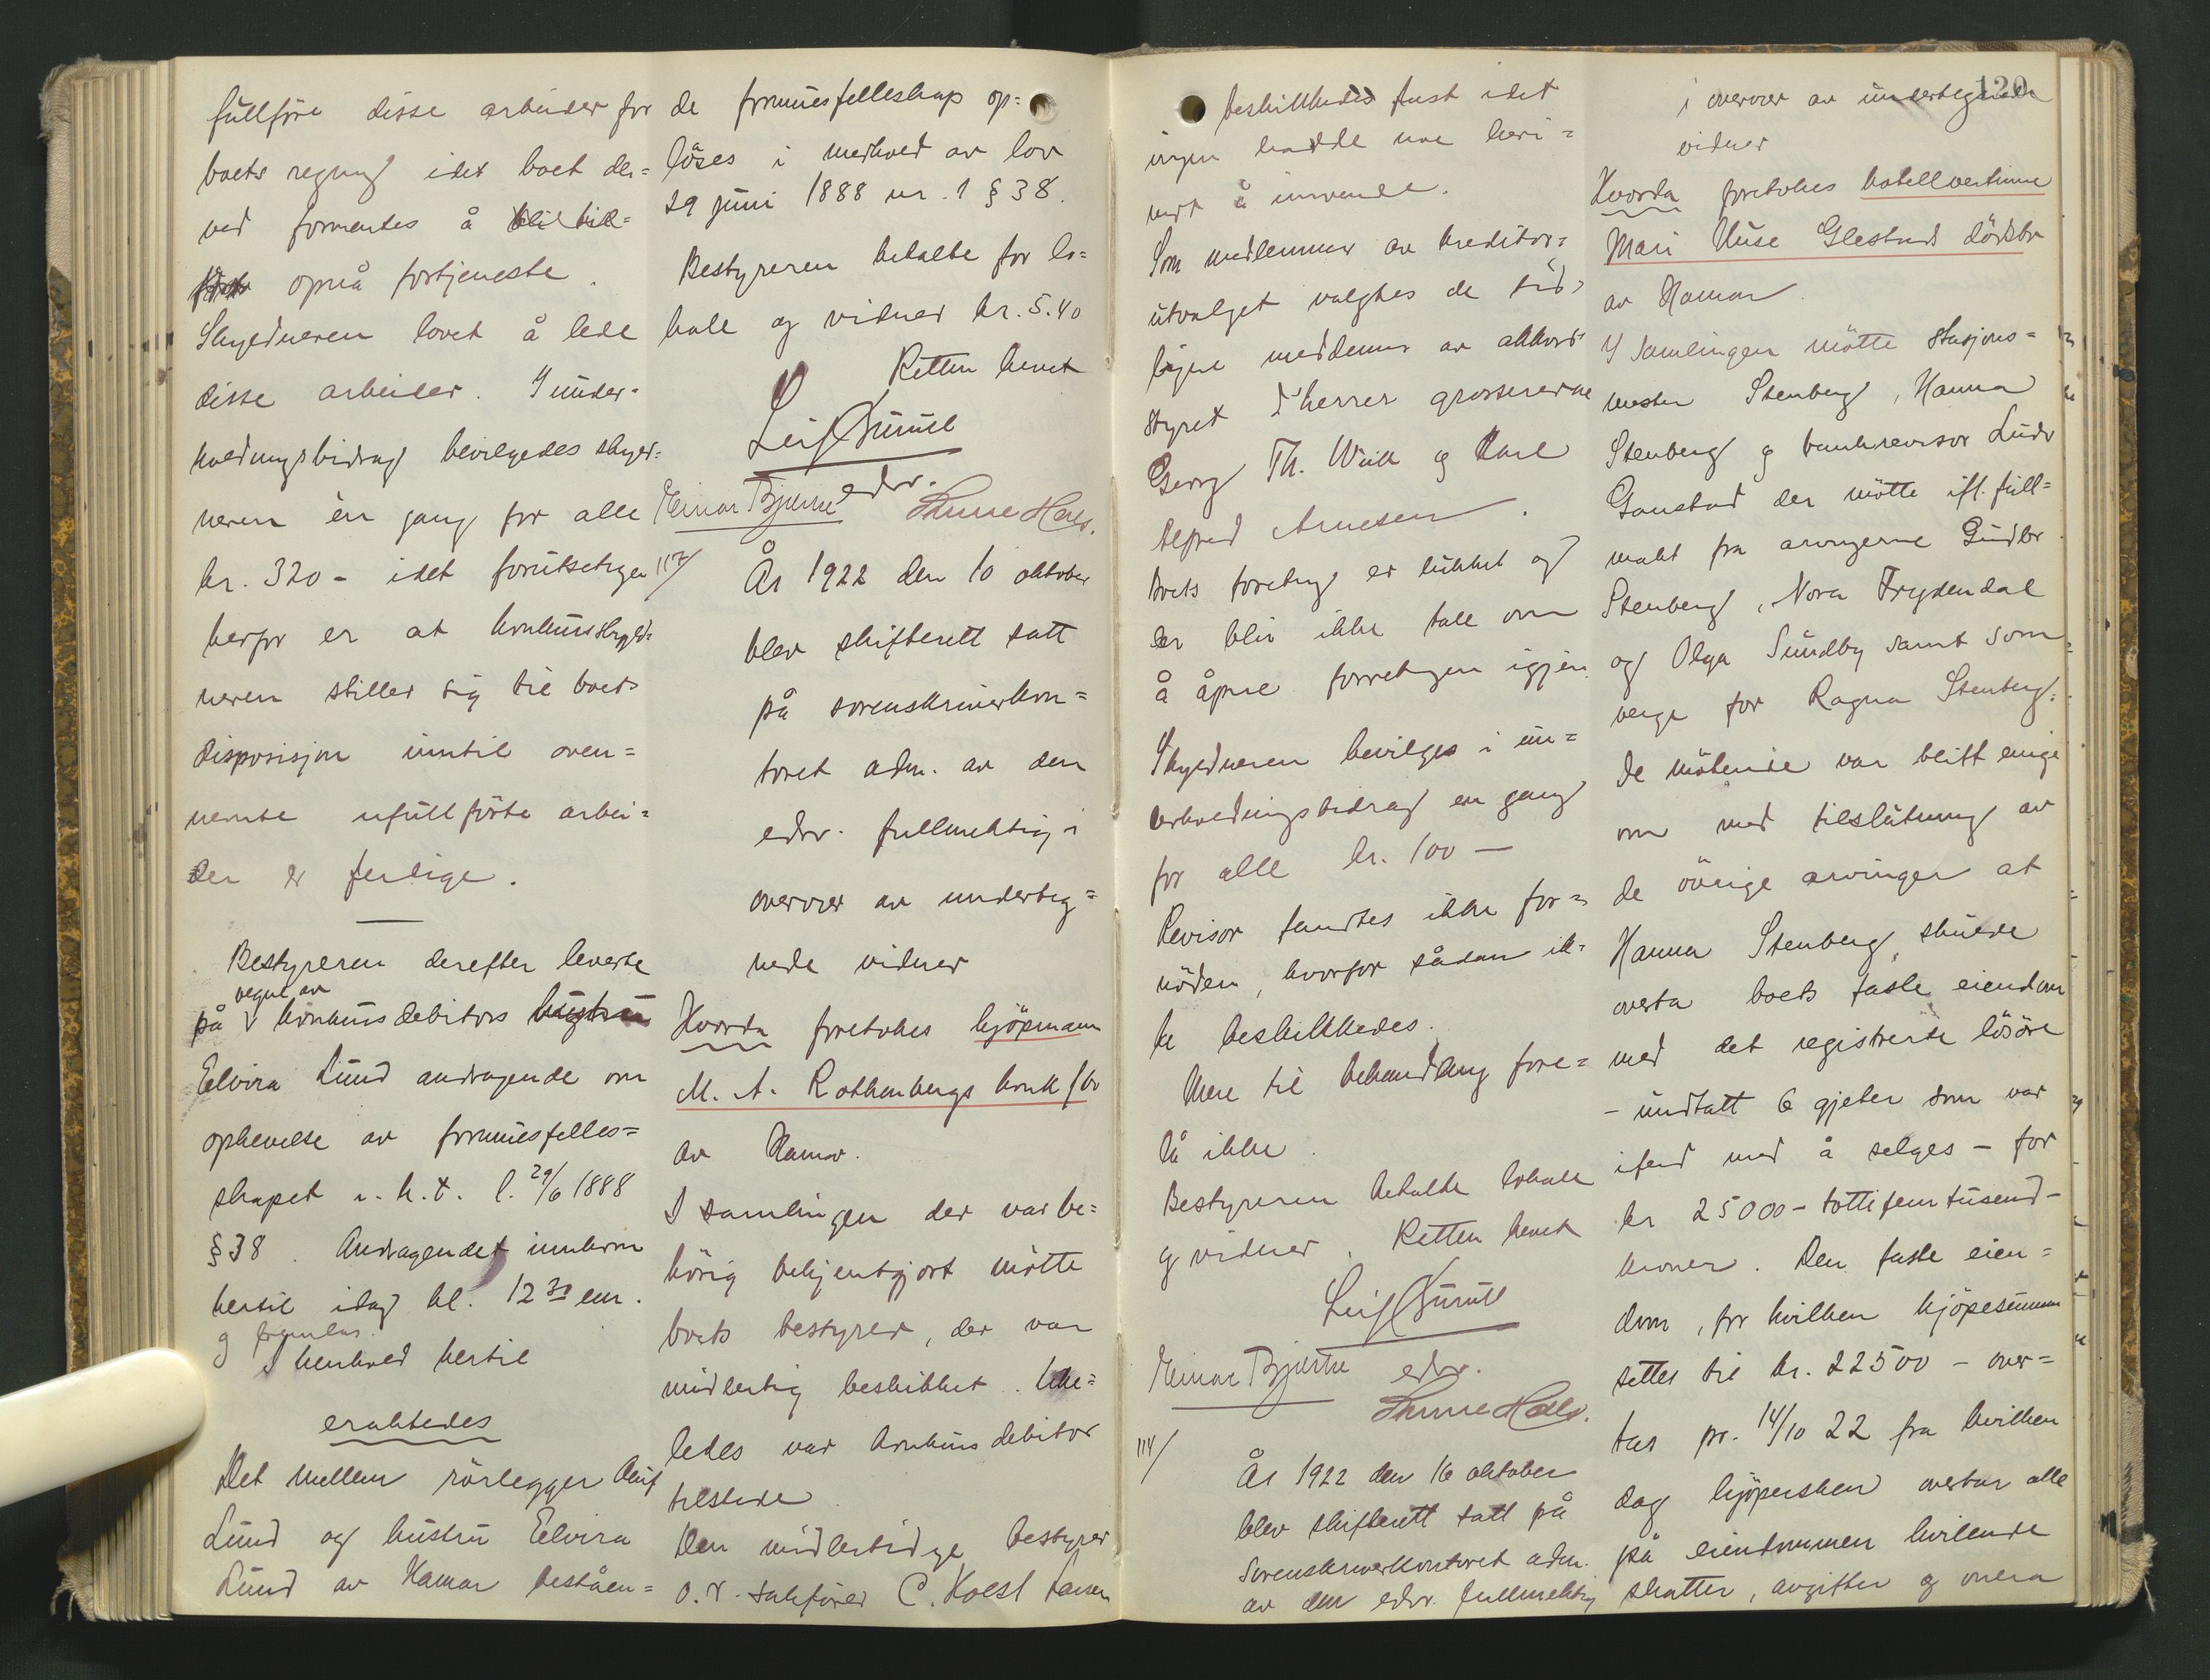 fullføre disse arbeider for
boets regning idet boet der=
ved formentes å
opnå fortjeneste.
Skyldneren lovet å lede
disse arbeider. I under=
holdningsbidrag bevilgedes skyld=
neren én gang for alle
kr. 320 - idet forutsetningen
herfor er at konkursskyld=
neren stiller sig til boets
disposisjon inntil oven=
nevnte ufullførte arbei=
der er ferdige.
Bestyreren derefter leverte
vegne av
på konkursdebitors hustru
Elvira Lund andragende om
ophevelse av formuesfelles=
skapet i. h. t. l. 29/6 1888
§ 38. Andragendet innkom
hertil idag kl. 12 30 em.
og
I henhold hertil
eraktedes
Det mellem rørlegger
Lund og hustru Elvira
Lund av Hamar beståen=
de formuesfelleskap op=
løses i medhold av lov
29 juni 1888 nr. 1 § 38.
Bestyreren betalte for lo=
kale og vidner kr. 5.40
Retten hevet
Leif Gruül
edsv.
Einar Bjerke Thune Hals.
117/
År 1922 den 10 oktober
blev skifterett satt
på sorenskriverkon=
toret adm. av den
edsv. fullmektig i
overvær av underteg=
nede vidner
Hvorda foretokes kjøpmann
M. A. Rothenbergs konk/bo
av Hamar.
I samlingen der var be=
hørig bekjentgjort møtte
boets bestyrer, der var
midlertidig beskikket. Like=
ledes var konkursdebitor
tilstede.
Den midlertidige bestyrer
o.r. sakfører C. Holst Larsen
beskikkedes fast idet
ingen hadde noe heri=
mot å innvende.
Som medlemmer av kreditor=
utvalget valgtes de tid=
ligere medlemmer av akkord
styret d'herrer grossererne
Georg Th. Wiik og Karl
Alfred Arnesen.
Boets forretning er lukket og
der blir ikke tale om
å åpne forretningen igjen.
Skyldneren bevilges i un=
derholdningsbidrag en gang
for alle kr. 100 —
Revisor fandtes ikke for=
nøden, hvorfor sådan ik=
ke beskikkedes.
Mere til behandling fore=
lå ikke.
Bestyreren betalte lokale
og vidner. Retten hevet
Leif Gruül
Einar Bjerke edsv.
Thune Hals.
114/
År 1922 den 16 oktober
blev skifterett satt på
Sorenskriverkontoret adm.
av den edsv. fullmektig
120
i overvær av undertegnede
vidner
Hvorda foretokes hotellvertinne
Mari Huse Glestads dødsbo
av Hamar.
I samlingen møtte stasjons=
mester Stenberg, Hanna
Stenberg og bankrevisor Ludv
Gaustad der møtte ifl. full=
makt fra arvingerne Gudbr.
Stenberg, Nora Frydendal
og Olga Sundby samt som
verge for Ragna Stenberg.
De møtende var blitt enige
om med tilslutning av
de øvrige arvinger at
Hanna Stenberg, skulde
overta boets faste eiendom
med det registrerte løsøre
- undtatt 6 gjeter som var
iferd med å selges - for
kr 25000 - tottifem tusend -
kroner. Den faste eien=
dom, for hvilken kjøpesummen
settes til kr. 22500 - over=
tas pr. 14/10 22 fra hvilken
dag kjøpersken overtar alle
på eiendommen hvilende
skatter, avgifter og onera